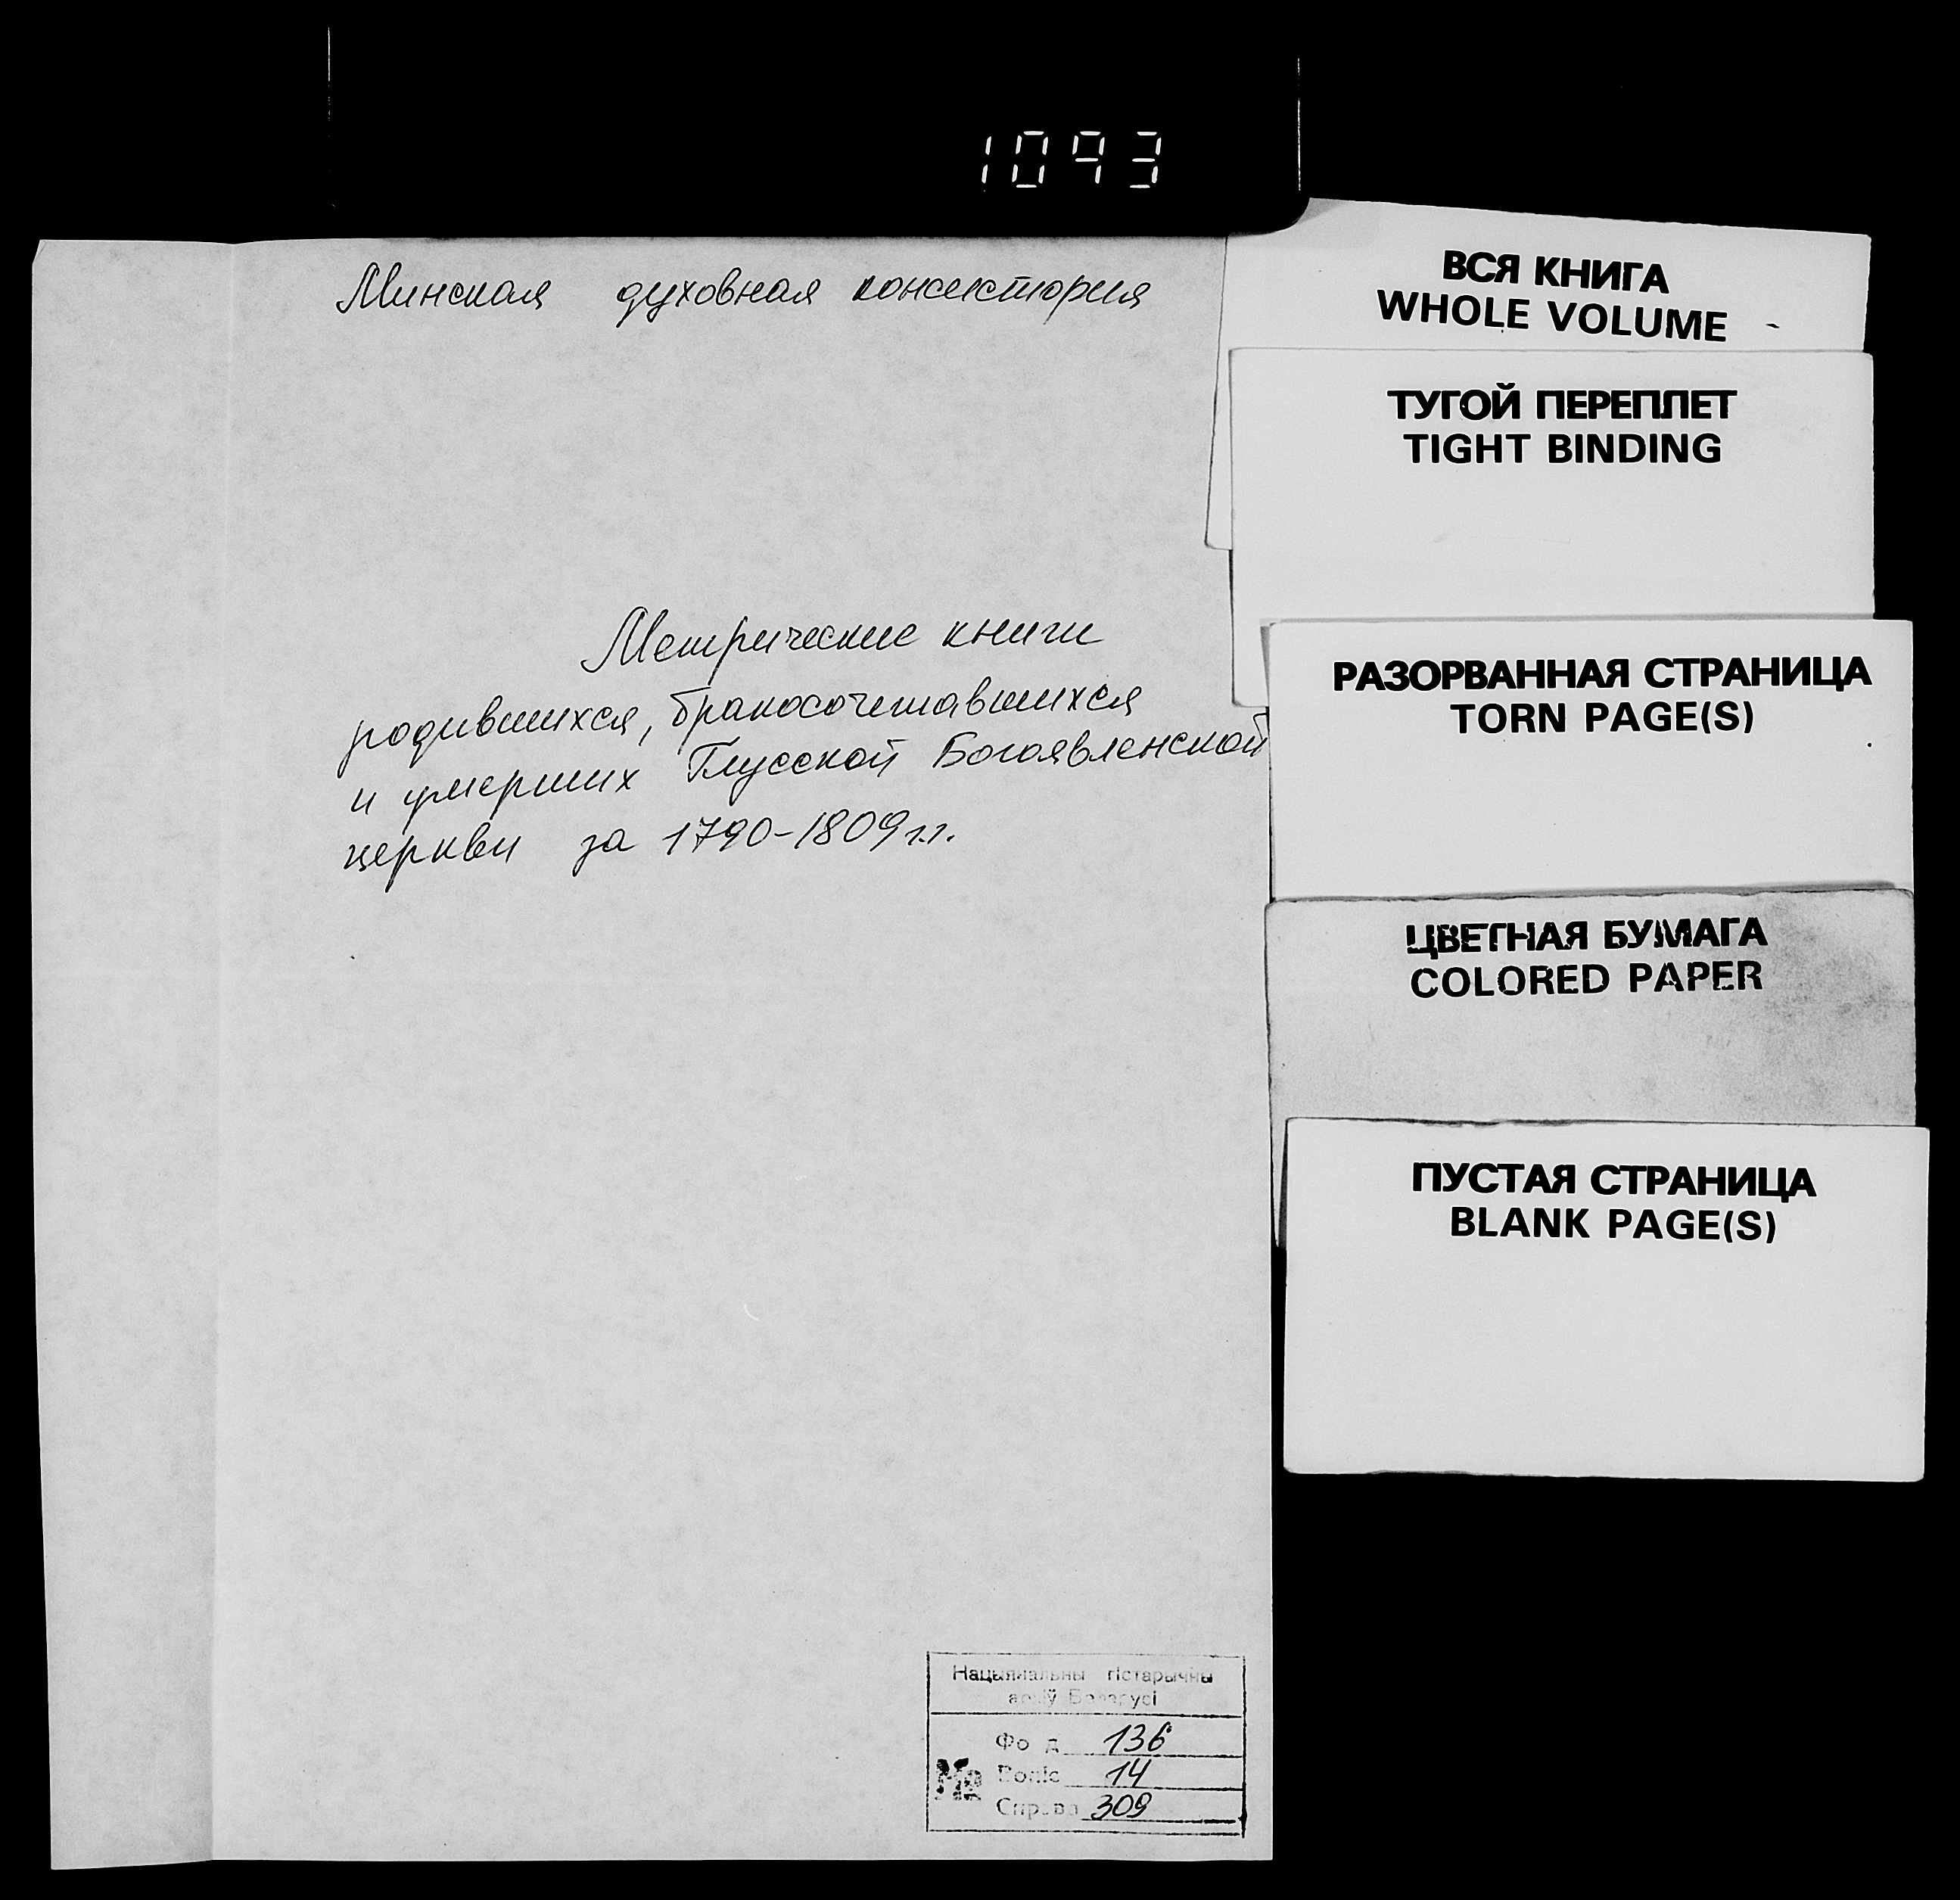 1093
Минская духовная консистория
Метрические книги
родившихся, бракосочетавшихся
и умерших Глусской Богоявленской
церкви за 1790-1809 г.г.
ВСЯ КНИГА
WHOLE VOLUME
ТУГОЙ ПЕРЕПЛЕТ
TIGHT BINDING
РАЗОРВАННАЯ СТРАНИЦА
TORN PAGE(S)
ЦВЕТНАЯ БУМАГА
COLORED PAPER
ПУСТАЯ СТРАНИЦА
BLANK PAGE(S)
Нацыянальны гістарычны
архіў Беларусі
Фонд 136
№ Вопіс 14
Справа 309